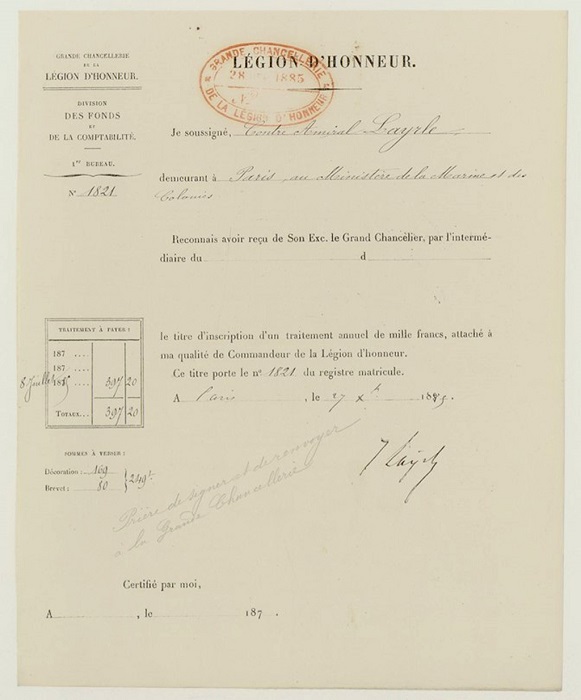 GRANDE CHANCELLERIE
DE LA
LÉGION D'HONNEUR.
DIVISION
DES FONDS
ET
DE LA COMPTABILITÉ.
1er BUREAU.
N° 1821
LÉGION D'HONNEUR.
GRANDE CHANCELLERIE
28 1885
DE LA LÉGION D'HONNEUR
Je soussigné, Contre Amiral Layrle
demeurant à Paris, au Ministère de la Marine et des
Colonies
Reconnais avoir reçu de Son Exc. le Grand Chancelier, par l'intermé-
diaire du d
le titre d'inscription d'un traitement annuel de mille francs, attaché à
ma qualité de Commandeur de la Légion d'honneur.
Ce titre porte le n° 1821 du registre matricule.
A Paris , le 27 Xbre 1885.
TRAITEMENT À PAYER :
187 ....
187 ....
8 Juillet 1885 397 20
TOTAUX... 397 20
SOMMES À VERSER :
Décoration : 169
Brevet : 80
249f
Prière de signer et de renvoyer
à la Grande Chancellerie
Certifié par moi,
A , le 187 .